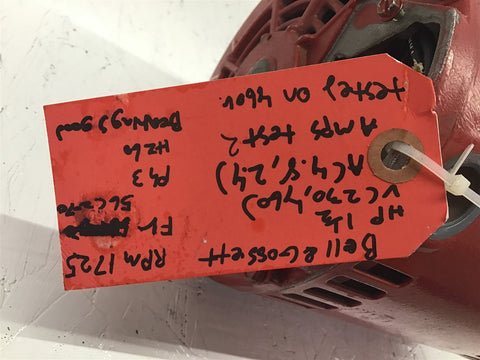 Bell & Gossett
HP 1 1/2 RPM 1725
V(230,460) Fr
56C
A(4.8, 2.4) Ph3
Amps test 2 Hz 60
tested on 460v. Bearings good